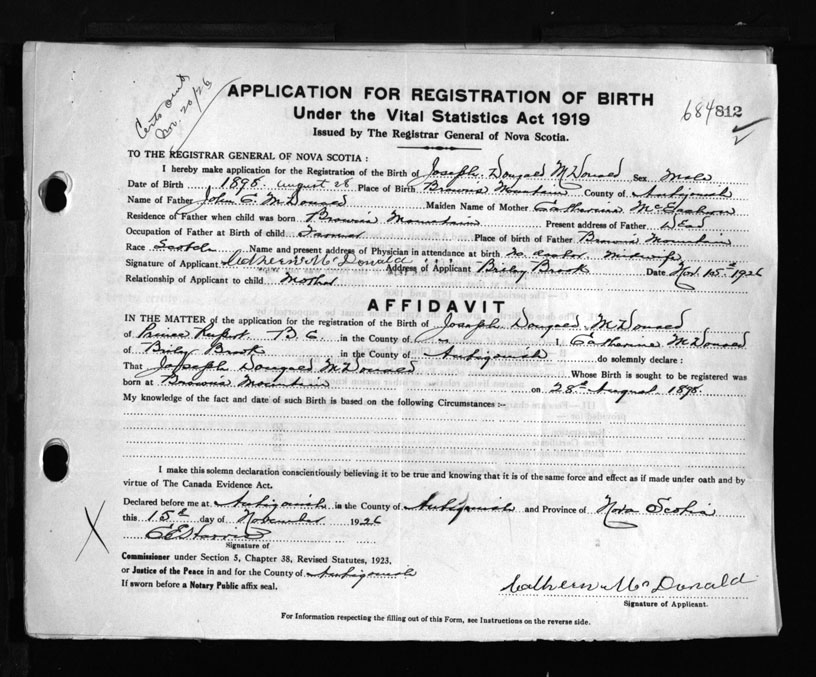 Certs sent
Nov. 20/26
APPLICATION FOR REGISTRATION OF BIRTH
684812
2
Under the Vital Statistics Act 1919
Issued by The Registrar General of Nova Scotia.
TO THE REGISTRAR GENERAL OF NOVA SCOTIA :
I hereby make application for the Registration of the Birth of Joseph Dougald McDonald Sex Male
Date of Birth 1898 August 28 Place of Birth Browns Mountain County of Antigonish
Name of Father John C. McDonald Maiden Name of Mother Catherine McEachern
Residence of Father when child was born Browns Mountain Present address of Father Dead
Occupation of Father at Birth of child Farmer Place of birth of Father Browns Mountain
Race Scotch Name and present address of Physician in attendance at birth No doctor midwife
Signature of Applicant Cathern McDonald Address of Applicant Briley Brook Date Nov. 15th 1926
Relationship of Applicant to child Mother
AFFIDAVIT
IN THE MATTER of the application for the registration of the Birth of Joseph Dougald McDonald
of Prince Rupert B C in the County of I, Catharine McDonald
of Briley Brook in the County of Antigonish do solemnly declare :
That Joseph Dougald McDonald Whose Birth is sought to be registered was
born at Browns Mountain on 28th August 1898.
My knowledge of the fact and date of such Birth is based on the following Circumstances :-
I make this solemn declaration conscientiously believing it to be true and knowing that it is of the same force and effect as if made under oath and by
virtue of The Canada Evidence Act.
Declared before me at Antigonish in the County of Antigonish and Province of Nova Scotia
this 15th day of November 1926
X
Signature of
Commissioner under Section 5, Chapter 38, Revised Statutes, 1923,
or Justice of the Peace in and for the County of Antigonish
If sworn before a Notary Public affix seal.
Cathern McDonald
Signature of Applicant.
For Information respecting the filling out of this Form, see Instructions on the reverse side.